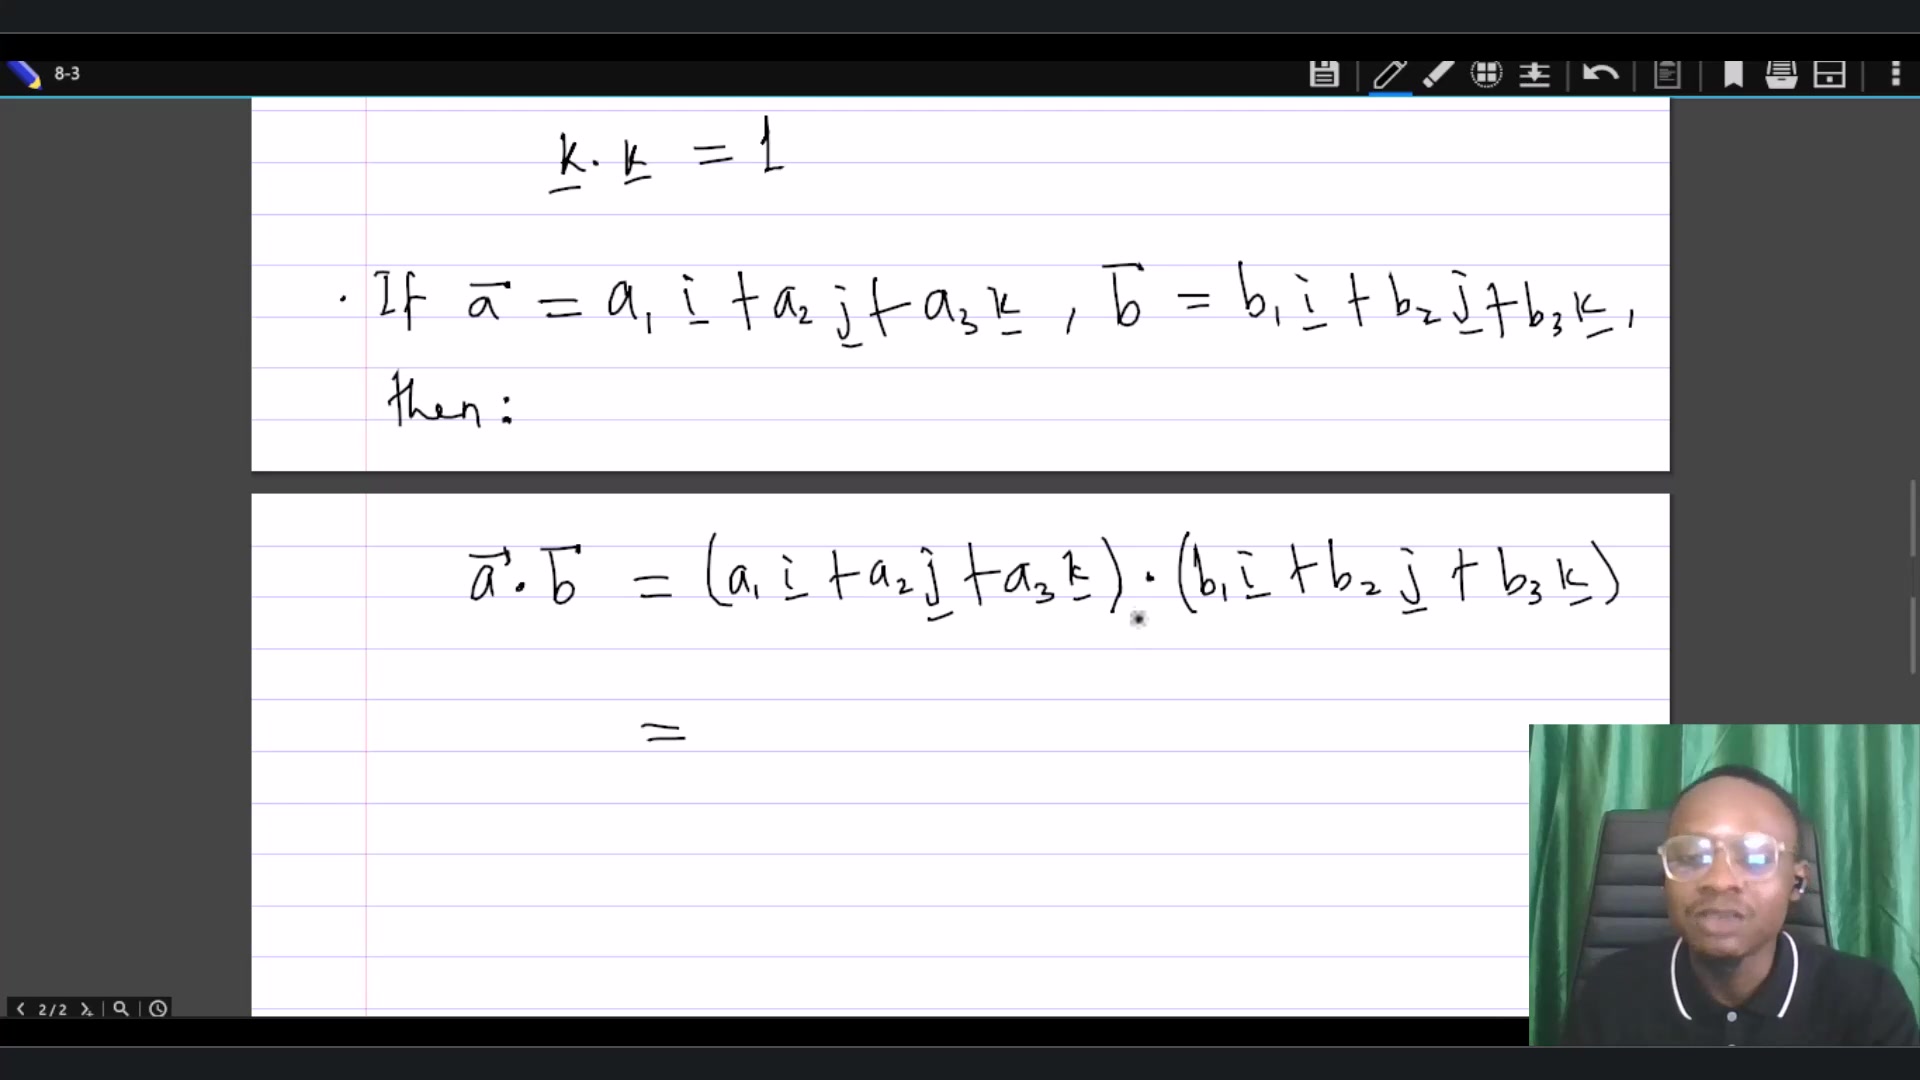 8-3
k̲ . k̲ = 1
· If a⃗ = a₁ i̲ + a₂ j̲ + a₃ k̲ , b⃗ = b₁ i̲ + b₂ j̲ + b₃ k̲ ,
then :
a⃗ . b⃗ = (a₁ i̲ + a₂ j̲ + a₃ k̲) · (b₁ i̲ + b₂ j̲ + b₃ k̲)
=
2/2